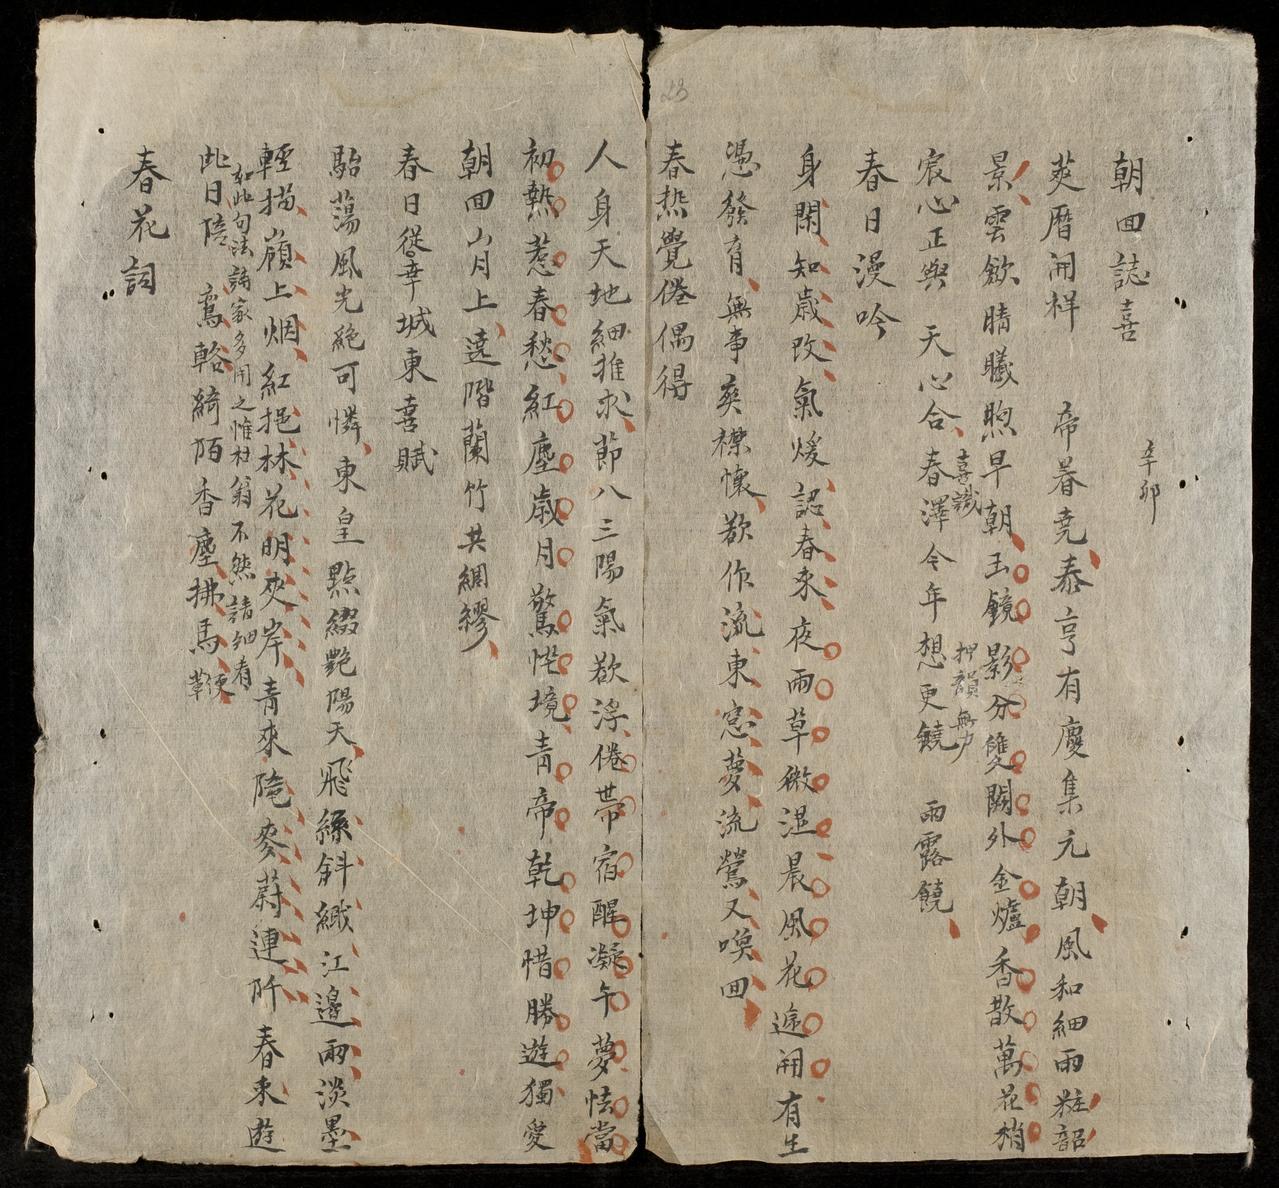 朝回誌喜
辛卯
蓂曆開祥 帝眷堯泰亨有慶集元朝風和細雨粧韶
景雲歛晴曦煦早朝玉鏡影分雙闕外金爐香散萬花梢
喜識
押韻無力
宸心正與 天心合春澤今年想更饒 雨露饒
春日漫吟
身閑知歲改氣煖認春来夜雨草微湿晨風花遞開有生
憑發育無事爽襟懷欲作流東窓夢流鶯又喚回
春热覺倦偶得
人身天地細推求節八三陽氣欲浮倦帶宿醒凝午夢怯當
初熱惹春愁紅塵歲月驚恍境青帝乾坤惜勝遊獨愛
朝回山月上遶階蘭竹共綢繆
春日從幸城東喜賦
駘蕩風光絕可憐東皇點綴艷陽天飛絲斜織江邊雨淡墨
輕描嶺上烟紅挹林花明夾岸青來隴麥蔚連阡春来遊
如此句法詩家多用之惟杜翁不然請細看
此日陪 鸞輅綺陌香塵拂馬鞭
春花詞